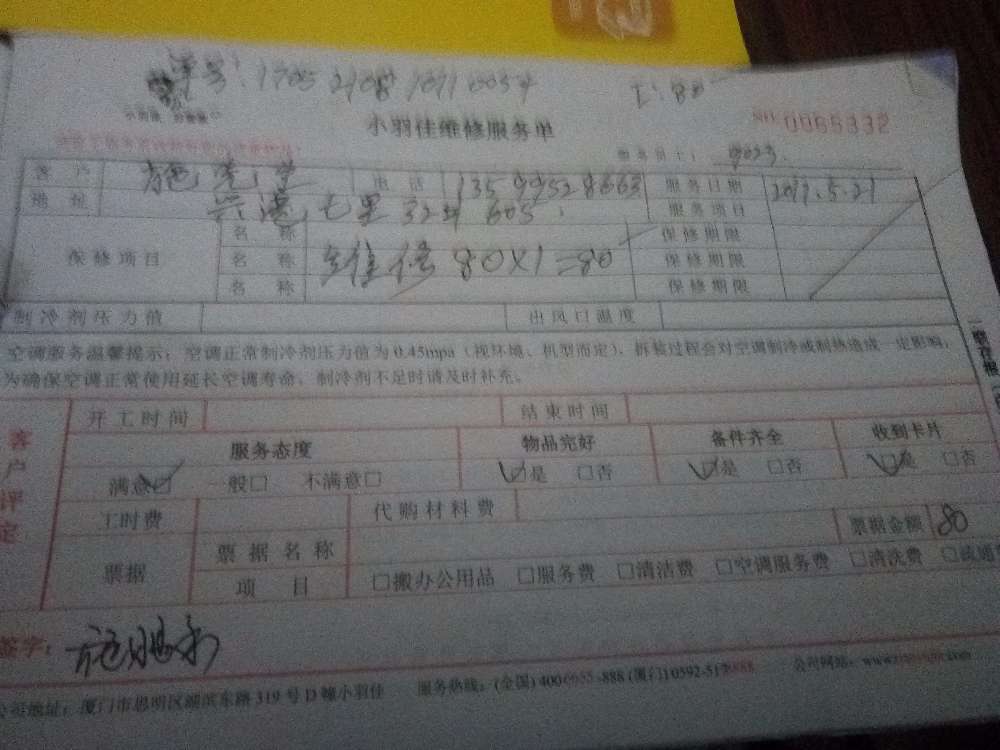 单号: 1705 2108 1011 0054
小羽佳维修服务单
NO: 0065332
服务员工: 9023.
客户 施先生 电话 13599528663 服务日期 2017.5.21
地址 兴港七里 605 服务项目
名称 保修期限
保修项目 名称 维修 80X1=80 保修期限
名称 保修期限
制冷剂压力值 出风口温度
空调服务温馨提示: 空调正常制冷剂压力值为0.45mpa (视环境、机型而定), 拆装过程会对空调制冷或制热造成一定影响,
为确保空调正常使用延长空调寿命, 制冷剂不足时请及时补充。
客户评定
开工时间 结束时间
服务态度 物品完好 备件齐全 收到卡片
满意□ 一般□ 不满意□ □是 □否 □是 □否 □是 □否
工时费 代购材料费
票据 票据名称 票据金额 80
项目 □搬办公用品 □服务费 □清洁费 □空调服务费 □清洗费
签字:
公司地址: 厦门市思明区湖滨东路319号D幢小羽佳 服务热线: (全国) 400 -888 (厦门) 0592-51 公司网站: www.